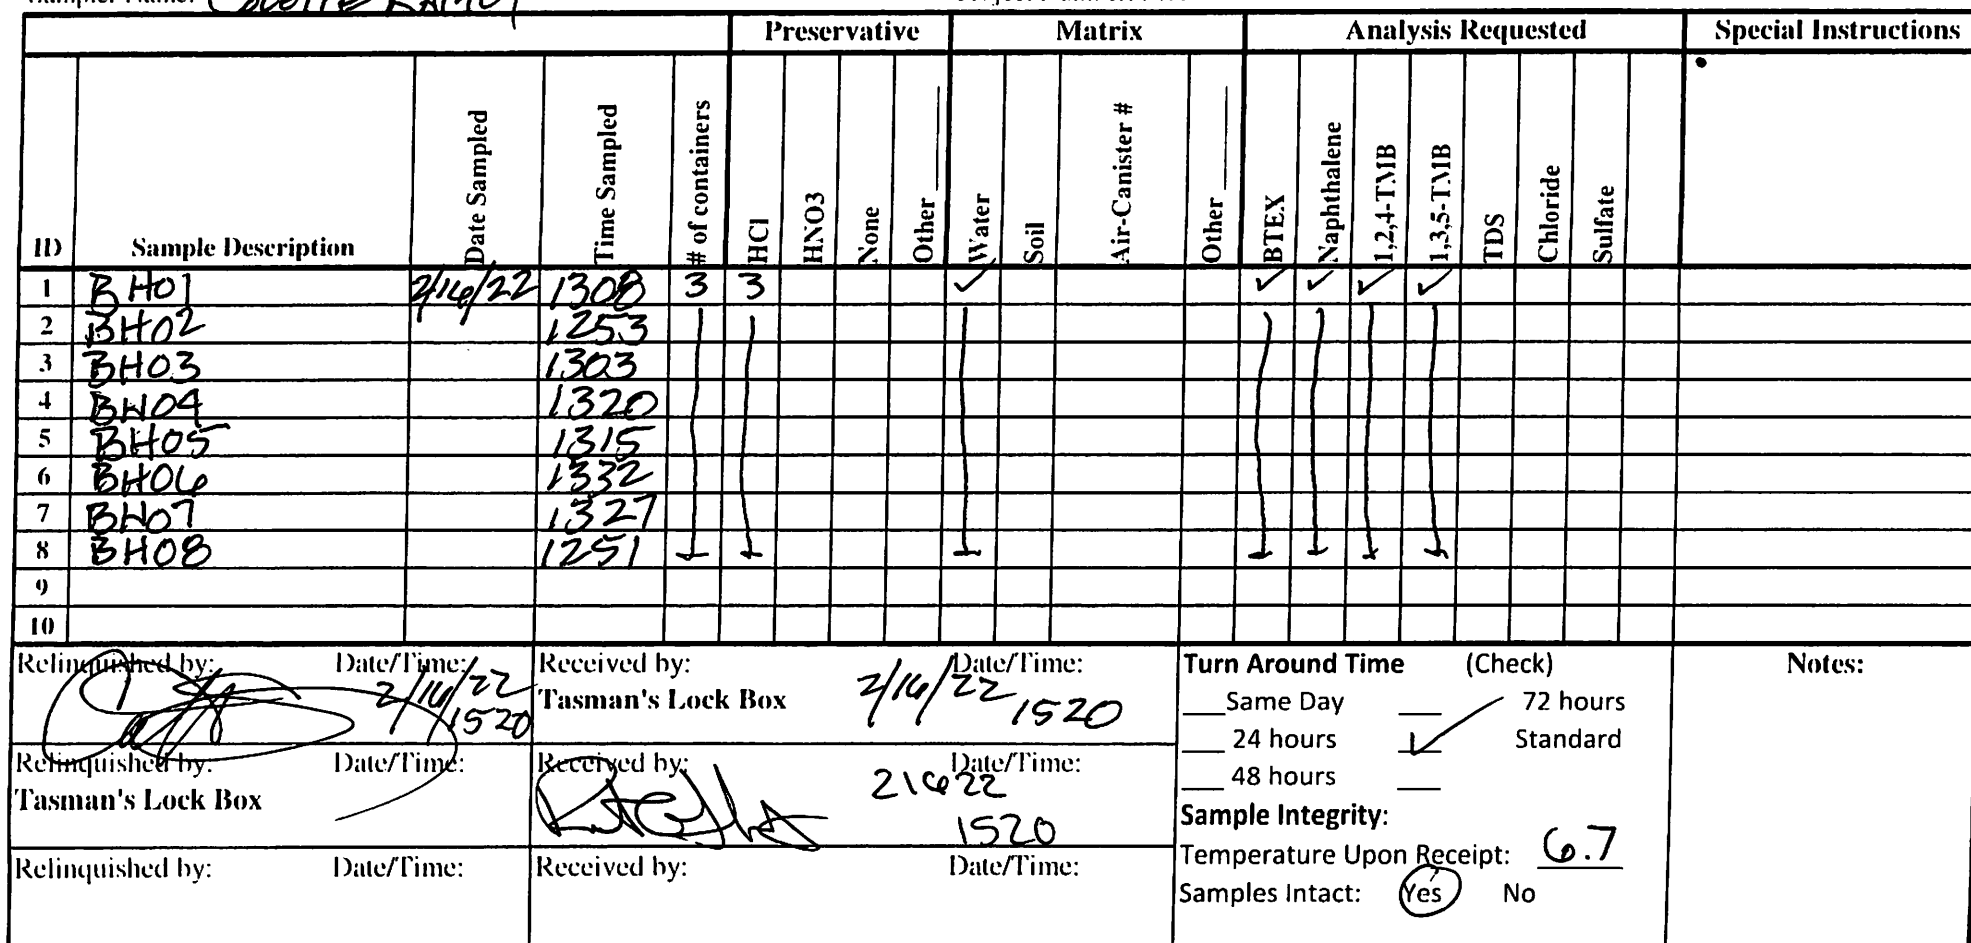 Preservative Matrix Analysis Requested Special Instructions
ID Sample Description Date Sampled Time Sampled # of containers HCl HNO3 None Other ____ Water Soil Air-Canister # Other ____ BTEX Naphthalene 1,2,4-TMB 1,3,5-TMB TDS Chloride Sulfate
1 BH01 2/16/22 1308 3 3 ✓ ✓ ✓ ✓ ✓
2 BH02 1253
3 BH03 1303
4 BH04 1320
5 BH05 1315
6 BH06 1332
7 BH07 1327
8 BH08 1251
9
10
Relinquished by: Date/Time: 2/16/22 1520
Received by: Tasman's Lock Box Date/Time: 2/16/22 1520
Relinquished by: Tasman's Lock Box Date/Time:
Received by: Date/Time: 21622 1520
Relinquished by: Date/Time:
Received by: Date/Time:
Turn Around Time (Check)
___ Same Day ___ 72 hours
___ 24 hours ✓ Standard
___ 48 hours ___
Sample Integrity:
Temperature Upon Receipt: 6.7
Samples Intact: Yes No
Notes: